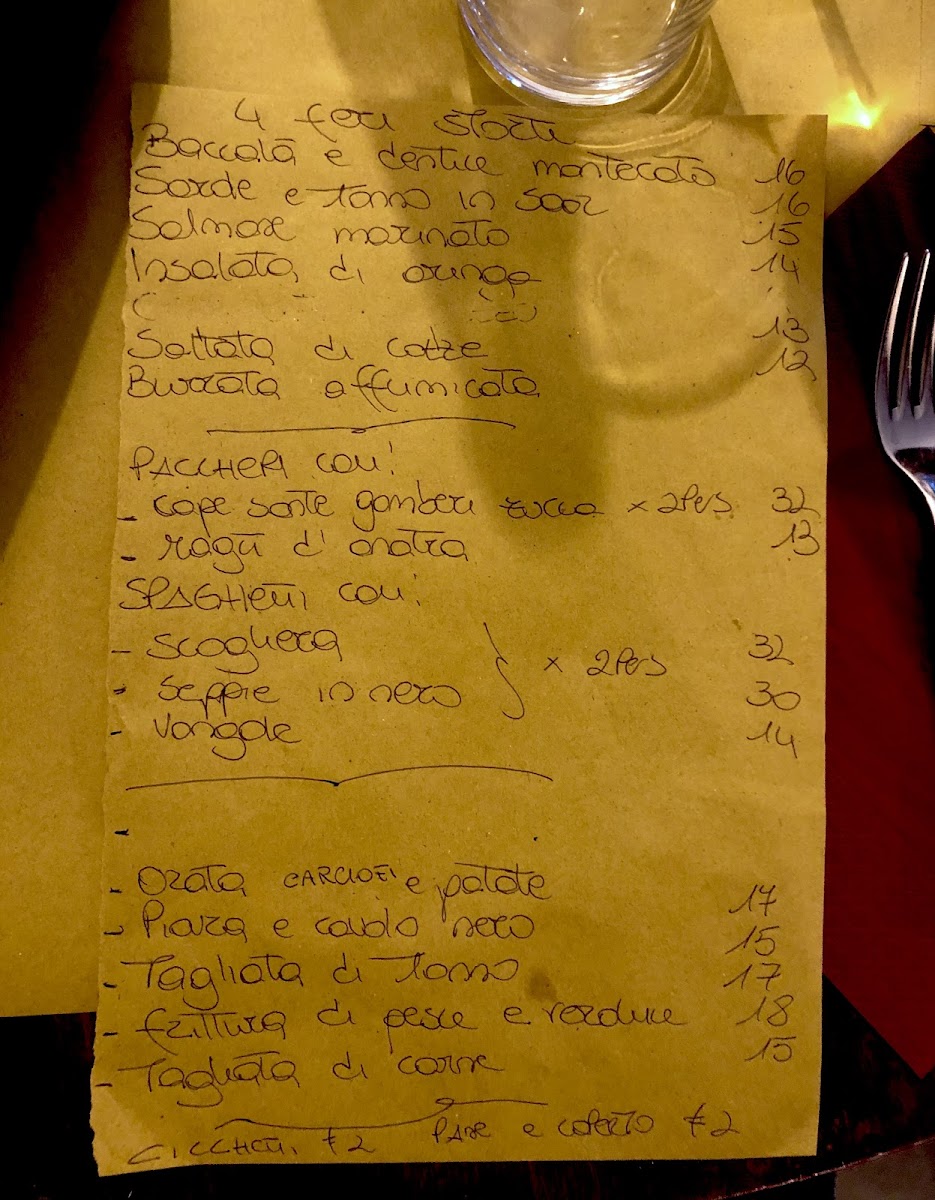 4 feri storti
Baccalà e dentice mantecato 16
Sarde e tonno in saor 16
Salmone marinato 15
Insalata di aringa 14
Saltata di cozze 13
Burrata affumicata 12
PACCHERI con:
- cape sante gamberi zucca x 2 Pers 32
- ragù d'anatra 13
SPAGHETTI con:
- scogliera 32
- seppie in nero x 2 Pers 30
- Vongole 14
-
- Orata CARCIOFI e patate 17
- Piovra e cavolo nero 15
- Tagliata di Tonno 17
- frittura di pesce e verdure 18
- Tagliata di carne 15
CICCHETTI €2 PANE e COPERTO €2